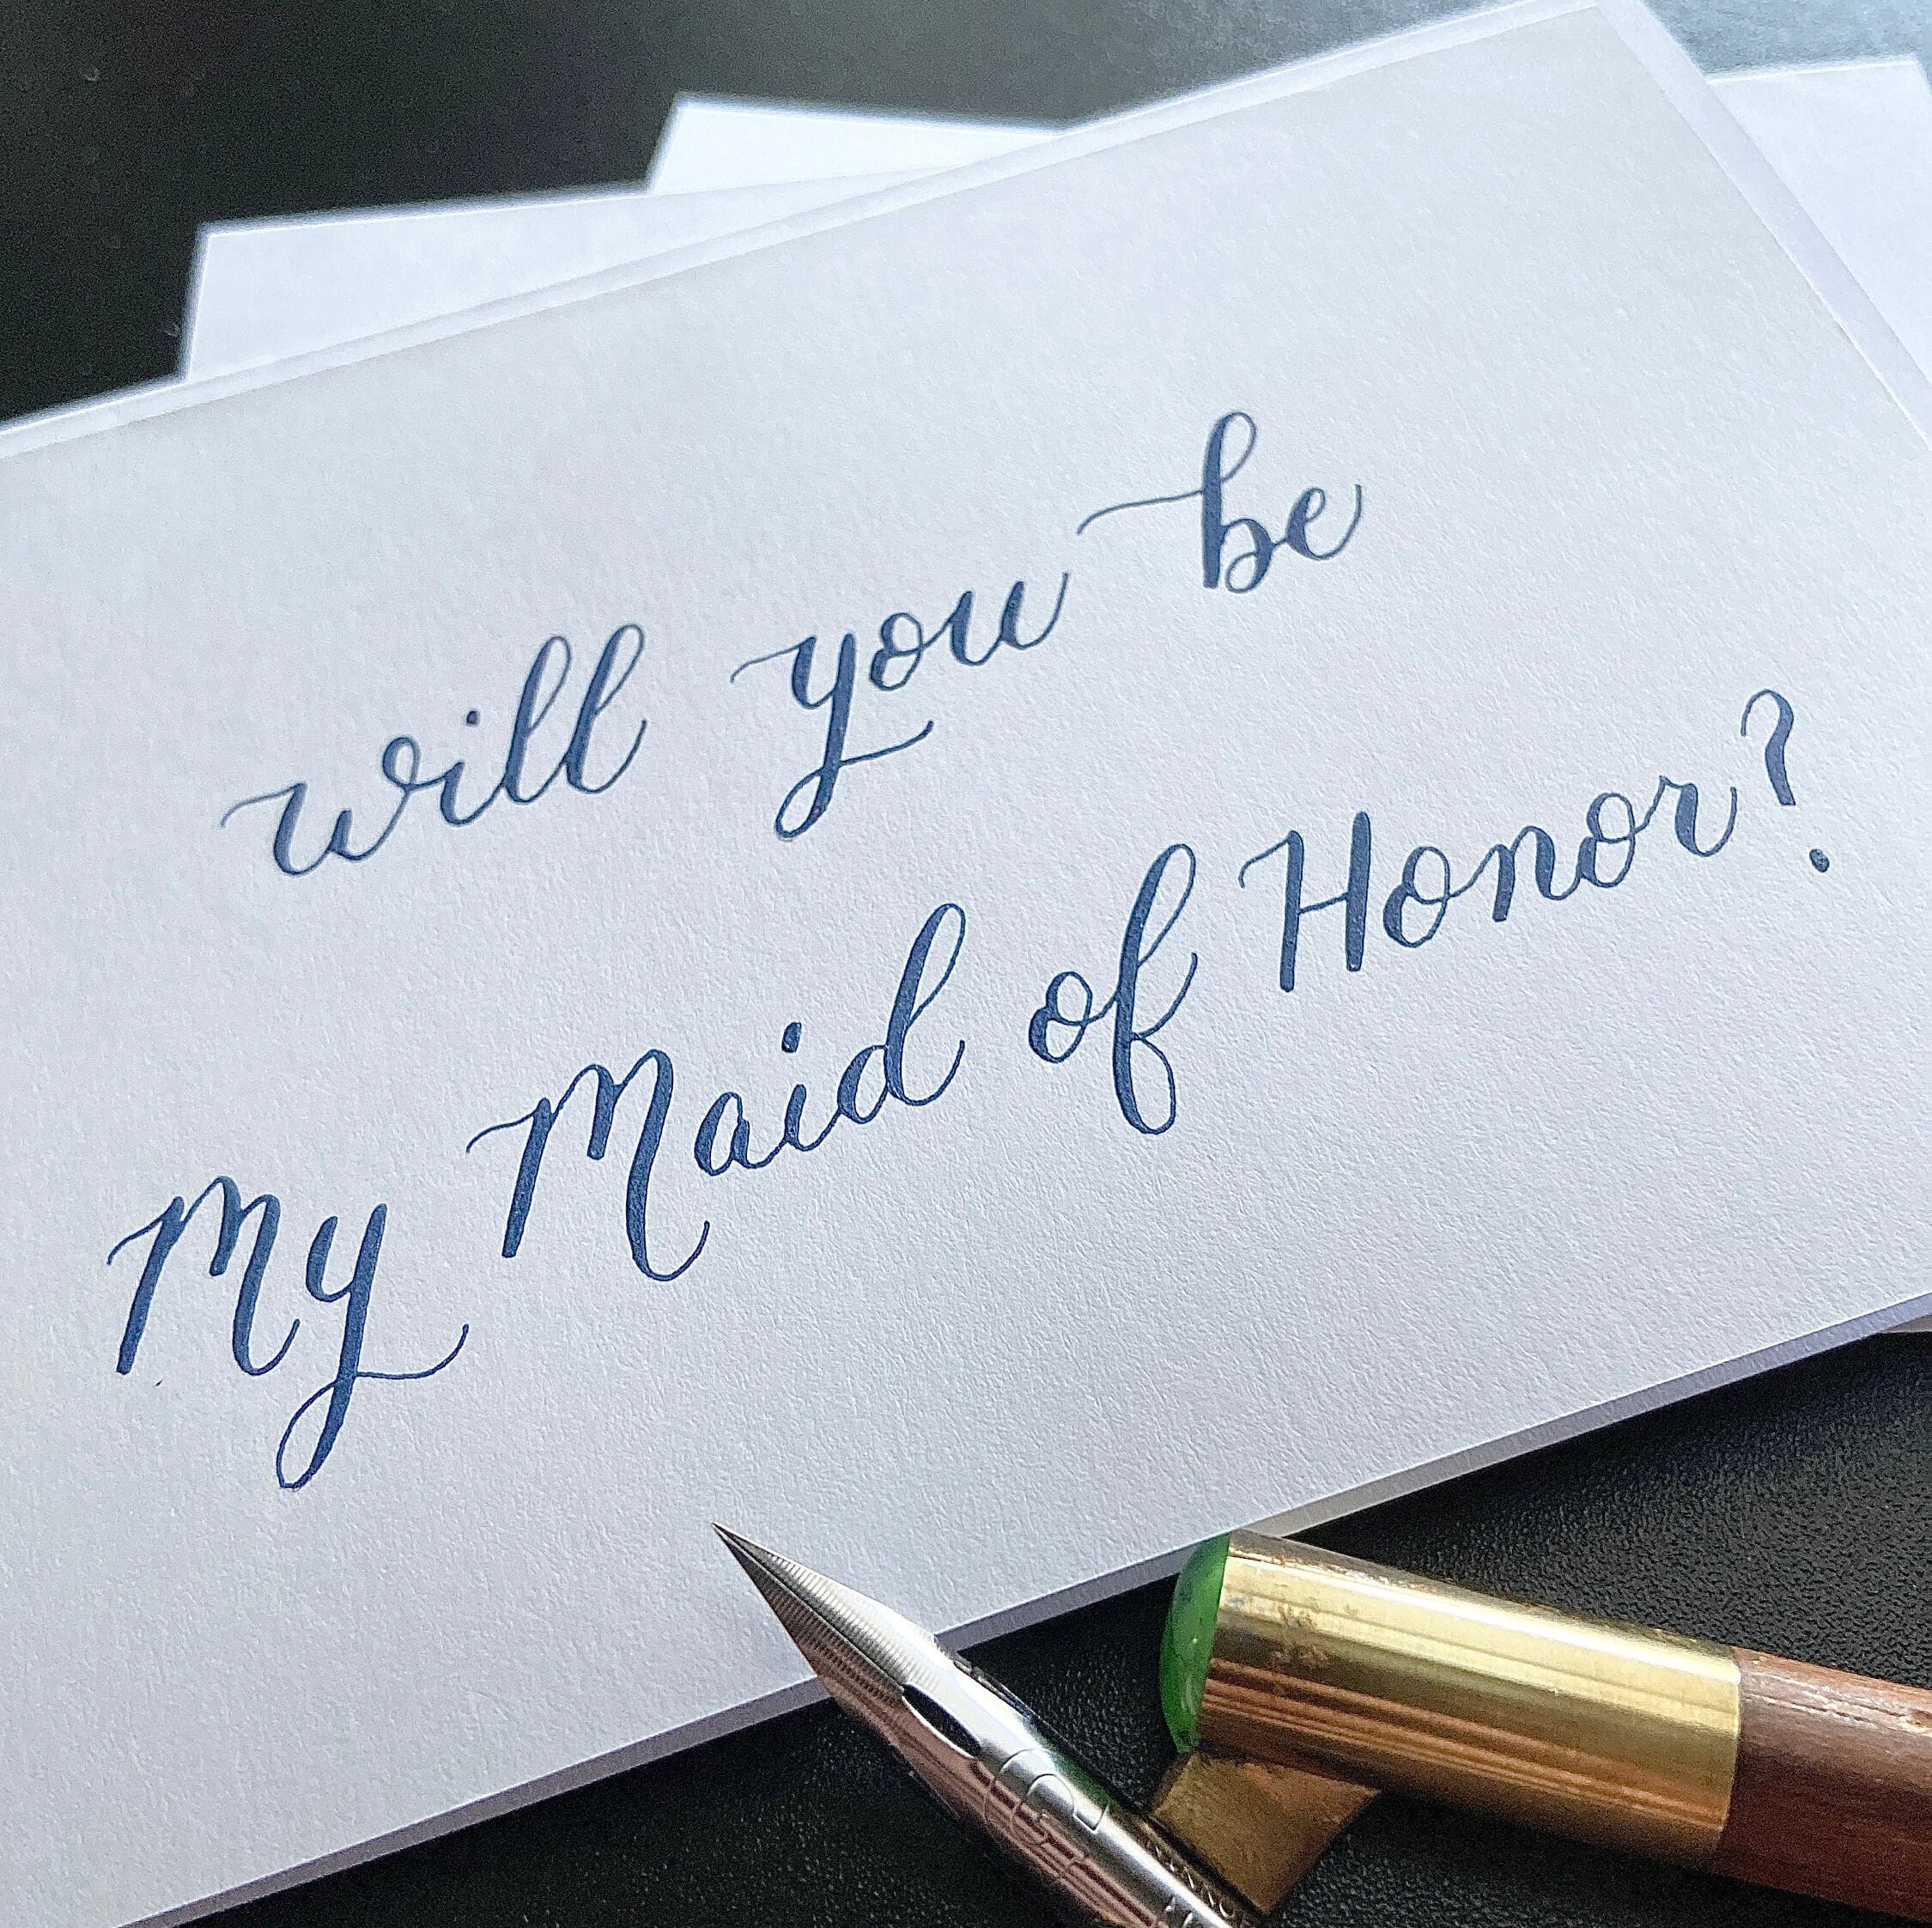 will you be
My Maid of Honor?
G